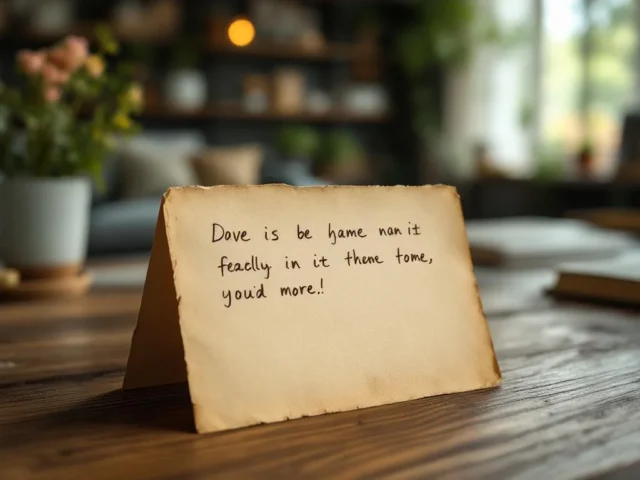 Dove is be hame nan it
feadly in it thene tome,
you'd more.!